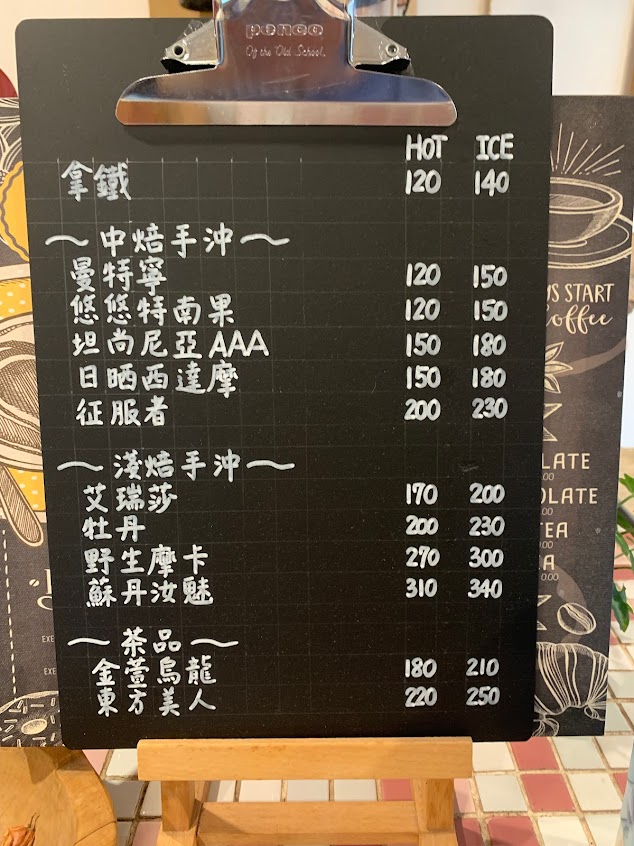 penco
Of the Old School.
HOT ICE
拿鐵 120 140
～中焙手沖～
曼特寧 120 150
悠悠特南果 120 150
坦尚尼亞AAA 150 180
日晒西達摩 150 180
征服者 200 230
～淺焙手沖～
艾瑞莎 170 200
牡丹 200 230
野生摩卡 270 300
蘇丹汝魅 310 340
～茶品～
金萱烏龍 180 210
東方美人 220 250
START
Coffee
LATE
OLATE
TEA